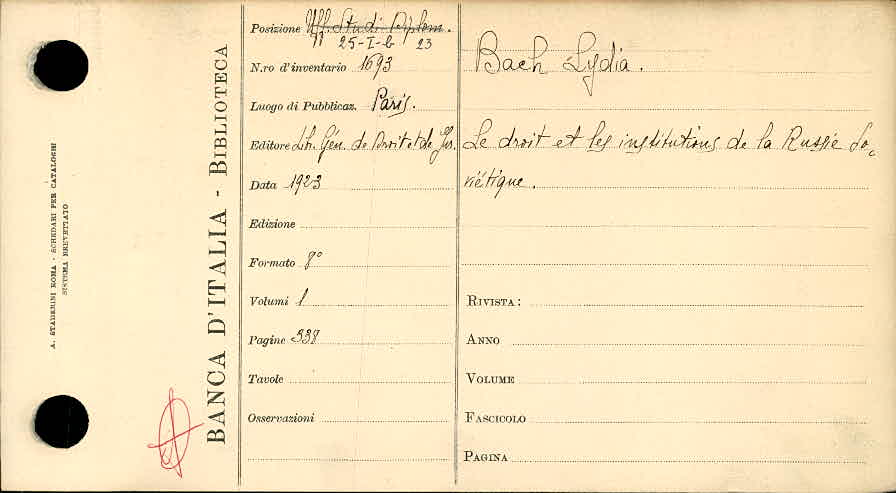 A. STADERINI ROMA - SCHEDARI PER CATALOGHI
SISTEMA BREVETTATO
BANCA D'ITALIA - BIBLIOTECA
Posizione Uff. Studi Diplom.
25-I-b 23
N.ro d'inventario 1693
Luogo di Pubblicaz. Paris.
Editore Lib. Gén. de Droit et de Jur.
Data 1923
Edizione
Formato 8°
Volumi 1
Pagine 338
Tavole
Osservazioni
Bach Lydia.
Le droit et les institutions de la Russie So-
viétique.
RIVISTA:
ANNO
VOLUME
FASCICOLO
PAGINA